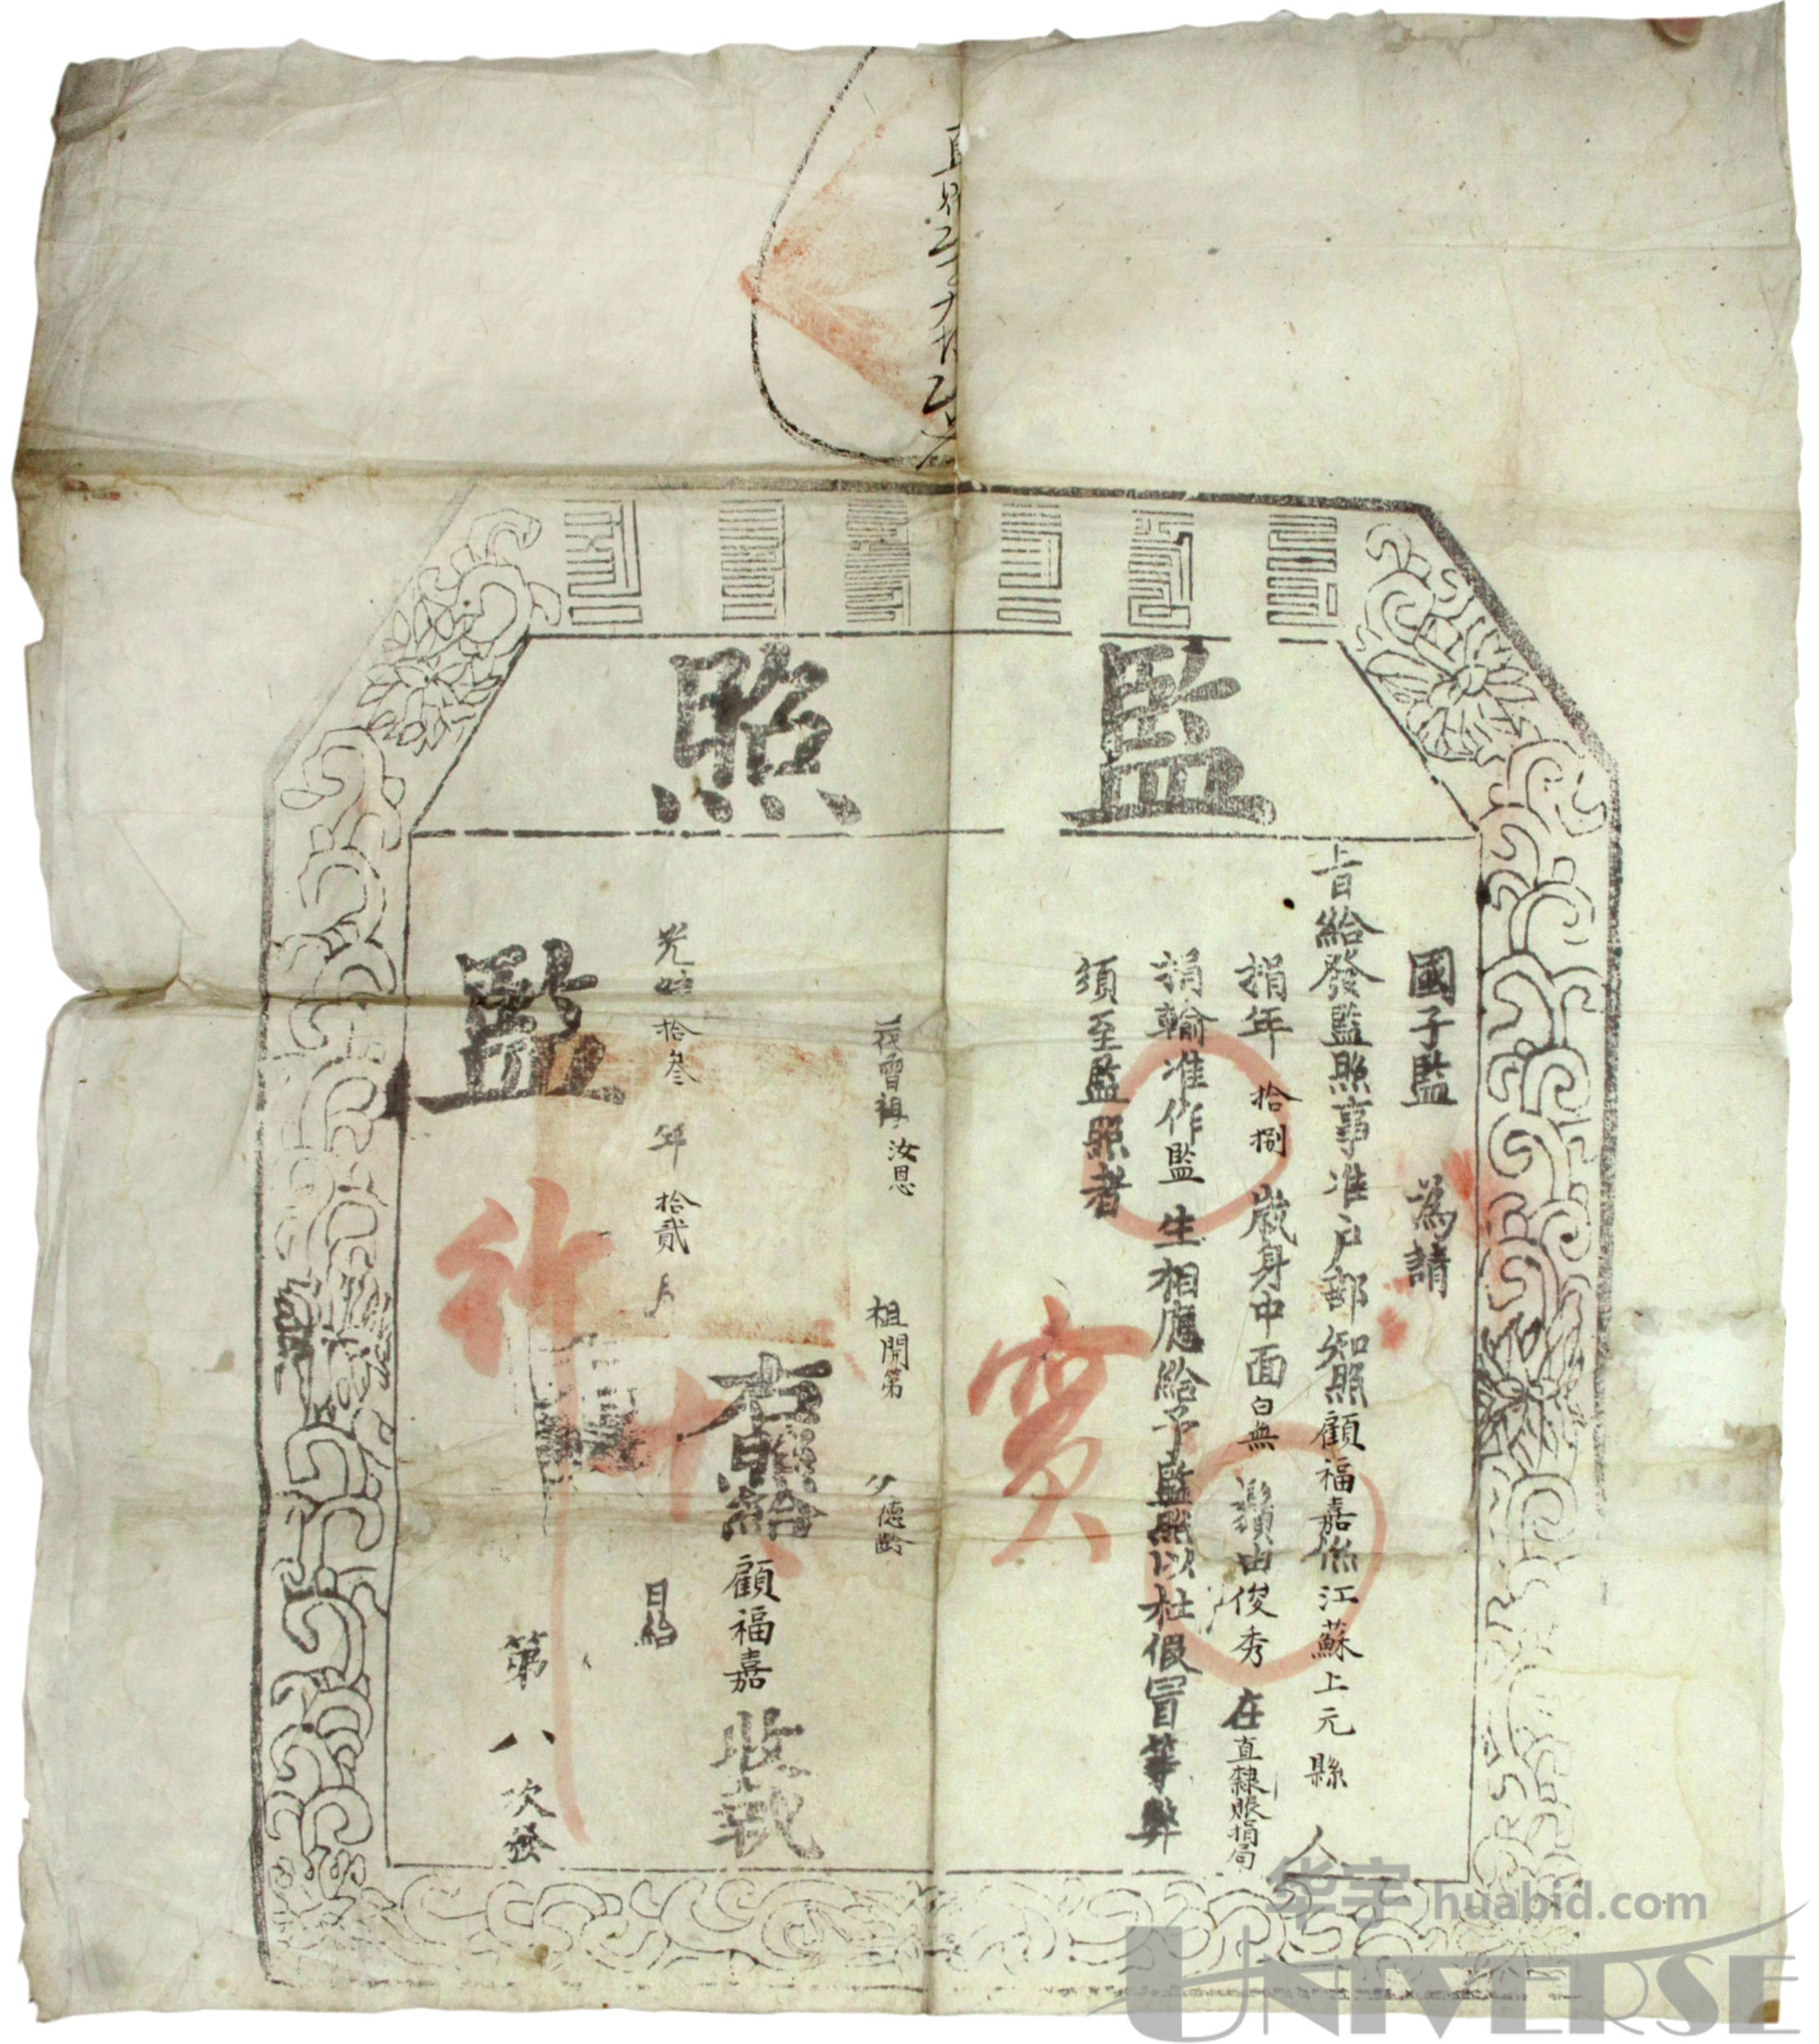 監照
國子監 為請
旨給發監照事准戶部知照顧福嘉係江蘇上元縣人
捐年拾捌歲身中面白無鬚由俊秀在直隸賑捐局
捐輸准作監生相應給予監照以杜假冒等弊
須至監照者
實
曾祖汝恩 祖開第 父德齡
右照給顧福嘉收執
光緒拾叁年拾貳月 日給
監
行
第八次發
华宇 huabid.com
UNIVERSE